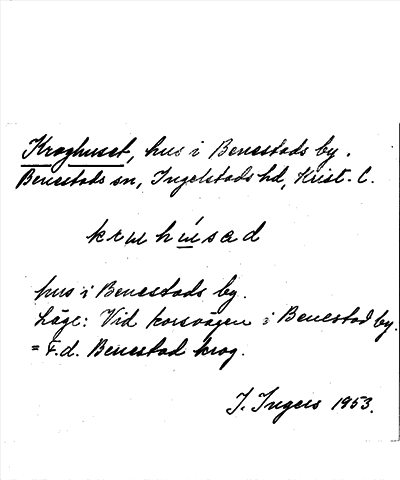 Kroghuset, hus i Benestads by.
Benestads sn, Ingelstads hd, Krist. L.
hus i Benestads by.
Läge: Vid korsvägen i Benestad by.
= F.d. Benestad krog.
I. Ingers 1953.